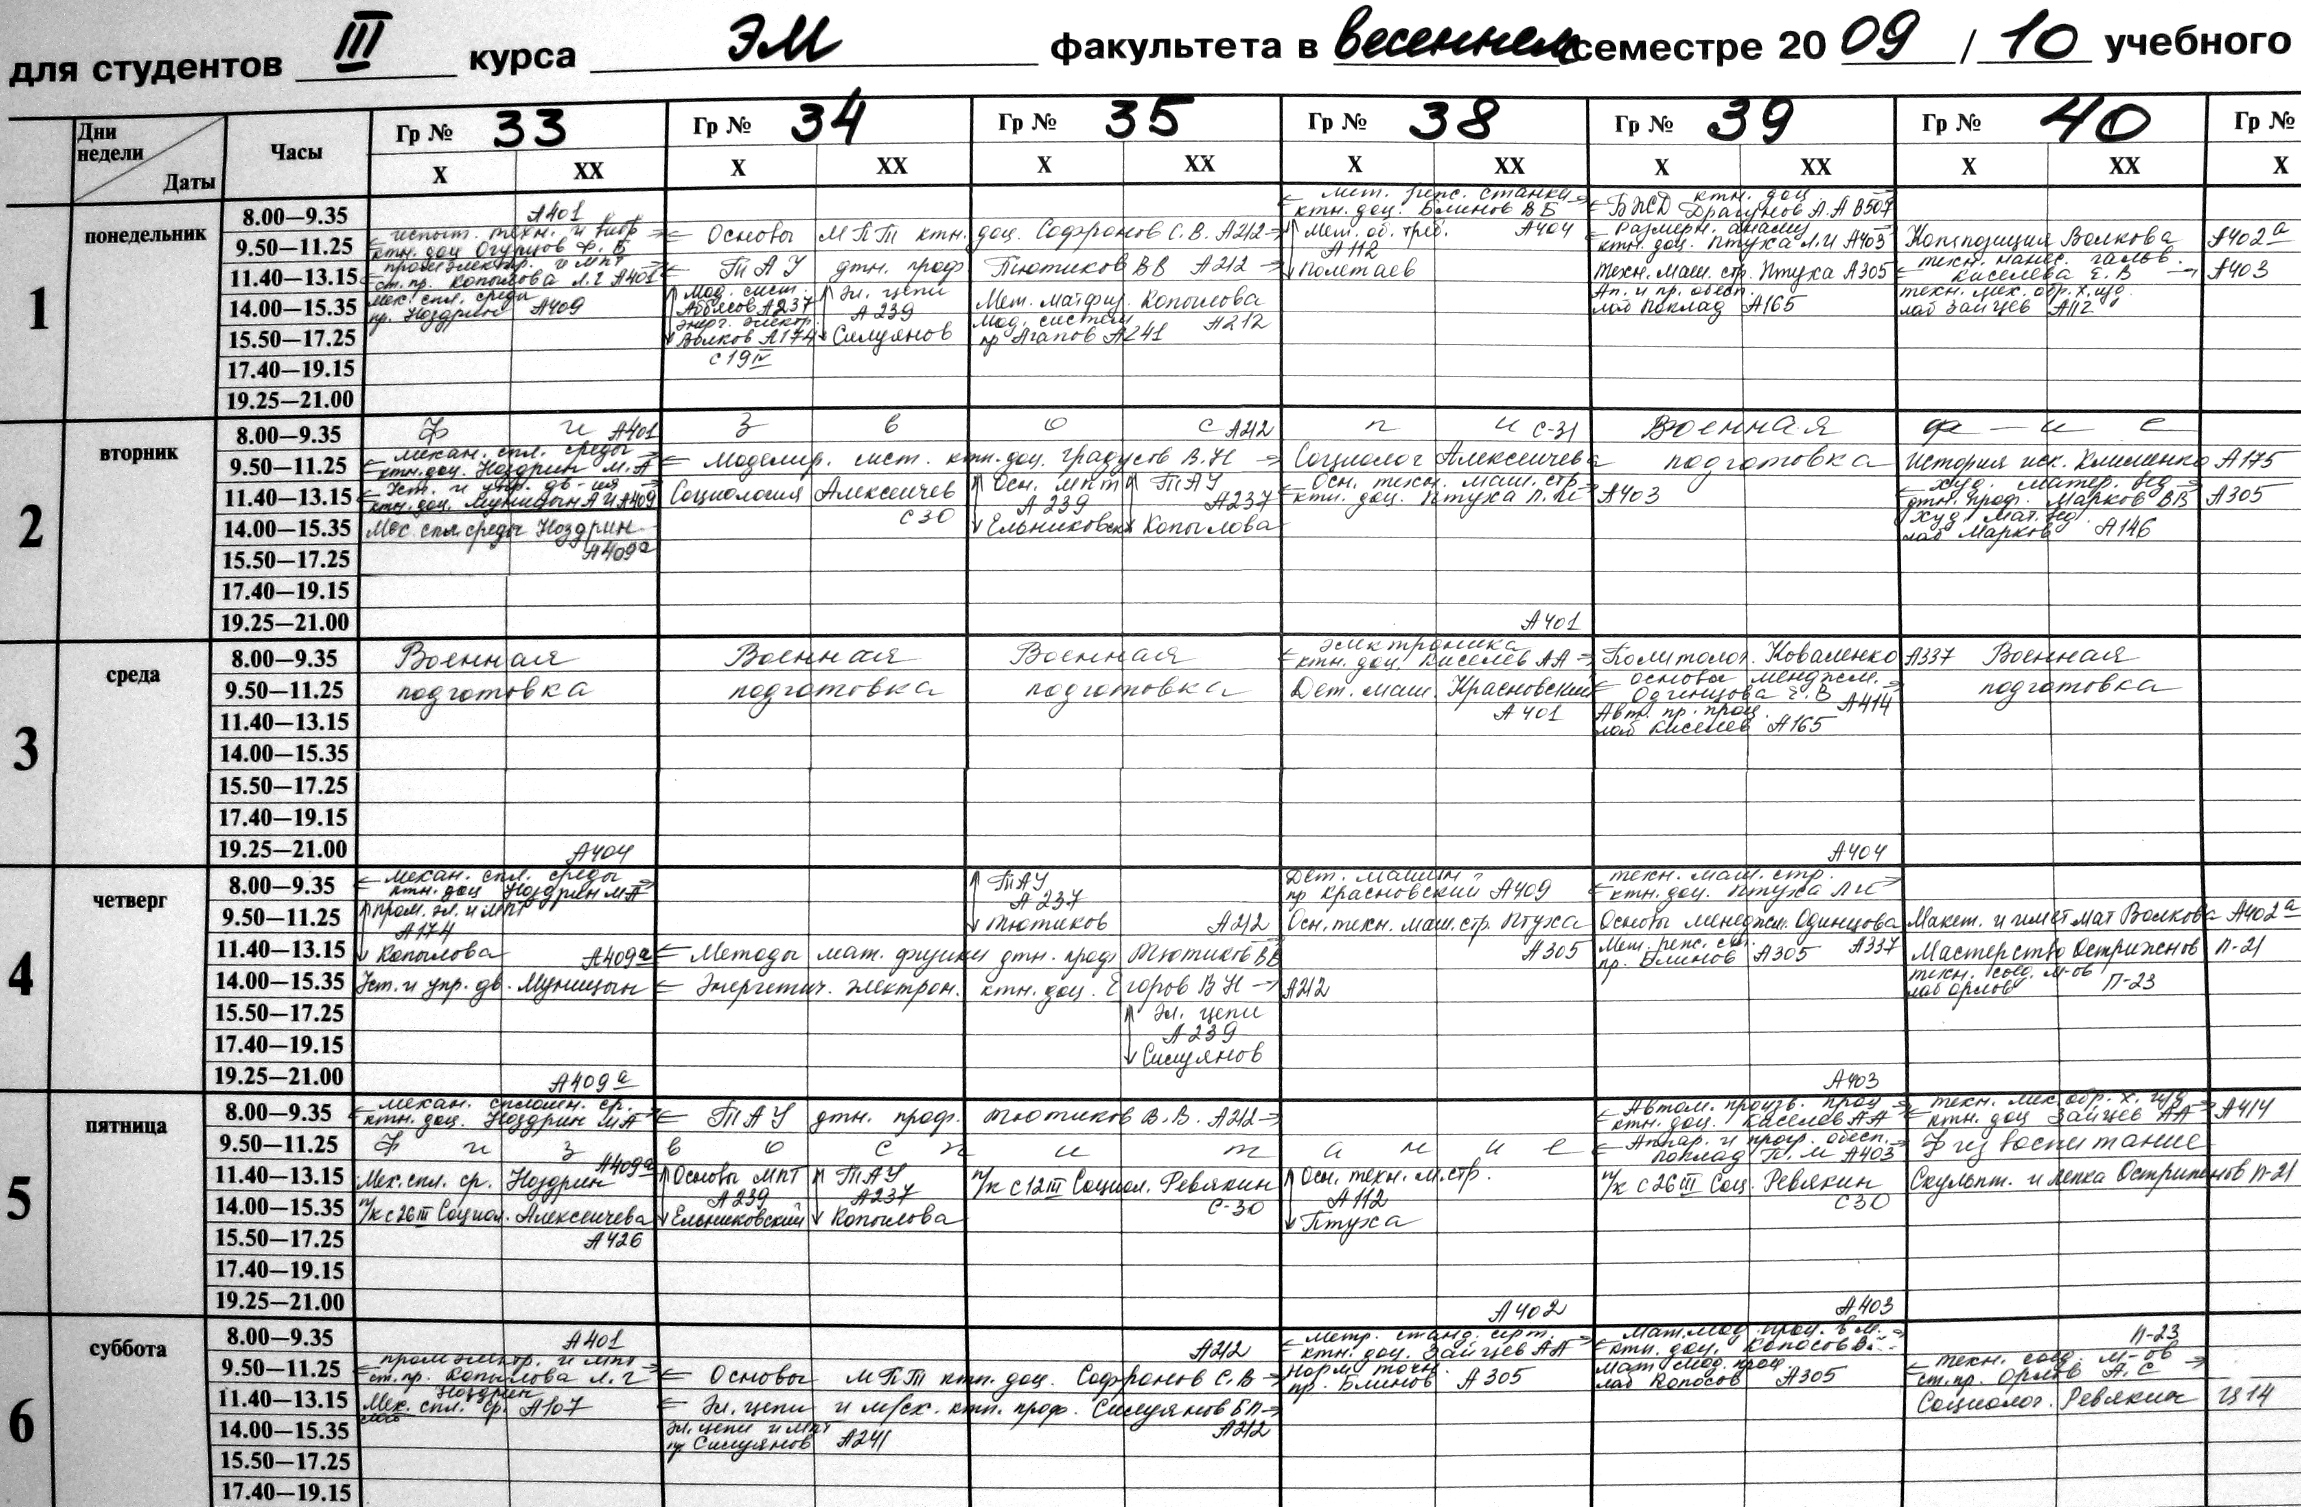 для студентов III курса ЭМ факультета в весеннем семестре 20 09 / 10 учебного
Дни недели Даты Часы Гр № 33 Гр № 34 Гр № 35 Гр № 38 Гр № 39 Гр № 40 Гр №
X XX X XX X XX X XX X XX X XX X
1 понедельник
8.00—9.35 А401 ктн. доц. Блинов В Б БЖД ктн. доц Драгунов А.А В507
9.50—11.25 ктн доц Огурцов Ф. Б Основы МПТ ктн. доц. Софронов С.В. А212 Мет. об. треб. А404 Размерн. анализ ктн. доц. Птуха Л.И А403 Композиция Волкова А402а
11.40—13.15 ст. пр. Копылова Л.Г А401 ТАУ дтн. проф Тютиков ВВ А212 А112 Полетаев Техн. маш. стр. Птуха А305 техн. нанес. гальв. Киселева Е. В А403
14.00—15.35 Мех. спл. среды пр. Ноздрин А409 Мод. сист. А237 Эл. цепи А239 Мет. мат физ. Копылова А212 Ап. и пр. обесп. лаб Поклад А165 техн. мех. обр. х. изд. лаб Зайцев А112
15.50—17.25 энерг. электр. Волков А174 с 19 IV Силуянов Мод. систем пр Агапов А241
17.40—19.15
19.25—21.00
2 вторник
8.00—9.35 Ф и А401 з в о с А212 п и С-31 Военная ф - и с
9.50—11.25 механ. спл. среды ктн. доц. Ноздрин М.А Моделир. сист. ктн. доц. Градусов В.Н Социолог Алексеичева подготовка История иск. Клименко А175
11.40—13.15 Уст. и упр. дв-ия ктн. доц. Муницын А И А409 Социология Алексеичев С30 Осн. МПТ А239 ТАУ А237 Осн. техн. маш. стр. ктн. доц. Птуха Л.И А403 худ. матер. вед дтн. проф. Марков ВВ А305
14.00—15.35 Мех. спл среды Ноздрин А409а Ельниковский Копылова худ мат. вед лаб Марков А146
15.50—17.25
17.40—19.15
19.25—21.00 А401
3 среда
8.00—9.35 Военная Военная Военная электроника ктн. доц. Киселев АА Политолог. Коваленко А337 Военная
9.50—11.25 подготовка подготовка подготовка Дет. маш. Красновский А401 основы менеджм. Одинцова Е. В А414 подготовка
11.40—13.15 Авт. пр. проц. лаб Киселев А165
14.00—15.35
15.50—17.25
17.40—19.15
19.25—21.00 А404 А404
4 четверг
8.00—9.35 механ. спл. среды ктн. доц Ноздрин МА ТАУ А237 Дет. машин пр Красновский А409 техн. маш. стр. ктн. доц. Птуха Л И
9.50—11.25 Пром. эл. и МПТ А174 Тютиков А212 Осн. техн. маш. стр. Птуха А305 Основы менеджм. Одинцова А337 Макет. и имет мат Волкова А402а
11.40—13.15 Копылова А409а Методы мат. физики дтн. проф Тютиков ВВ Мет. репс. ст. пр. Блинов А305 Мастерство Острижнов П-21
14.00—15.35 Уст. и упр. дв. Муницын Энергетич. электрон. ктн. доц. Егоров В Н А212 техн. соед. м-ов лаб Орлов П-23
15.50—17.25 Эл. цепи
17.40—19.15 А239 Силуянов
19.25—21.00 А409а А403
5 пятница
8.00—9.35 механ. сплошн. ср. ктн. доц. Ноздрин МА ТАУ дтн. проф. Тютиков В.В. А212 Автом. произв. проц ктн. доц. Киселев АА техн. мех обр. х. изд ктн. доц Зайцев АА А414
9.50—11.25 Ф и з в о с п и т а н и е Аппар. и прогр. обесп. Поклад П. М А403 Физвоспитание
11.40—13.15 Мех. спл. ср. Ноздрин А409а Основы МПТ А239 ТАУ А237 п/к с 12 III Социол. Ревякин С-30 Осн. техн. м. стр. А112 п/к с 26 III Соц. Ревякин С30 Скульпт. и лепка П-21
14.00—15.35 п/к с 26 III Социол. Алексеичева А426 Ельниковский Копылова Птуха
15.50—17.25
17.40—19.15
19.25—21.00 А402 А403
6 суббота
8.00—9.35 А401 А212 Метр. станд. серт. ктн. доц. Зайцев АА Мат. мод. проц. в м. ктн. доц. Колосов В. П-23
9.50—11.25 ст. пр. Копылова Л. Г Основы МПТ ктн. доц. Софронов С. В Норм точн. пр. Блинов А305 Мат мод. проц лаб Колосов А305 техн. соед. м-ов ст. пр. Орлов А. С
11.40—13.15 Ноздрин Мех. спл. ср. А107 Эл. цепи и м/сх. ктн. проф. Силуянов БП А212 Социолог. Ревякин Ц14
14.00—15.35 Эл. цепи и МПТ пр Силуянов А241
15.50—17.25
17.40—19.15